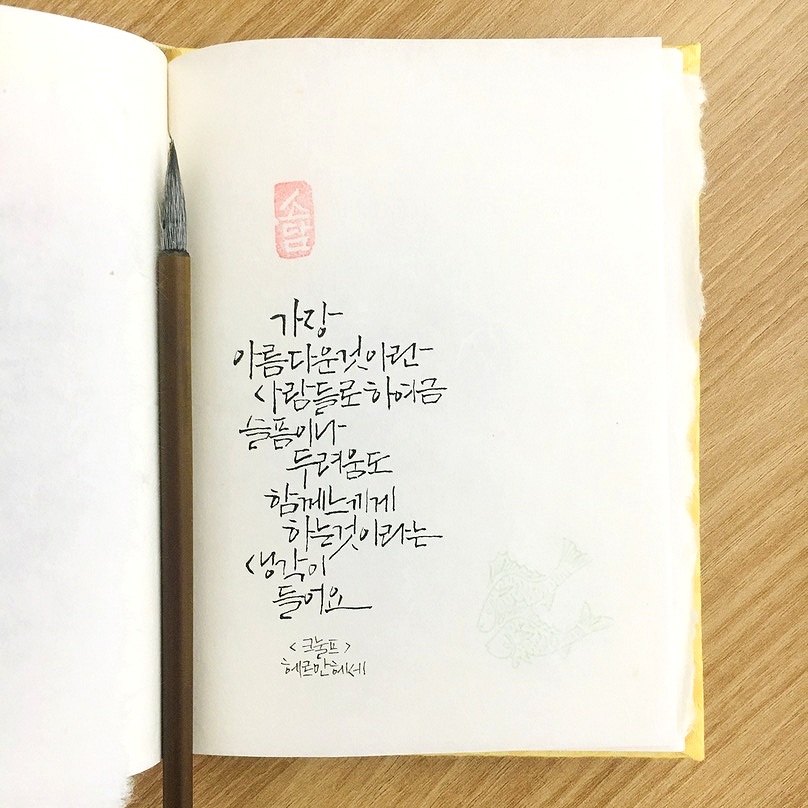 소담
가장
아름다운것이란
사람들로하여금
슬픔이나
두려움도
함께느끼게
하는것이라는
생각이
들어요
<크눌프>
헤르만헤세